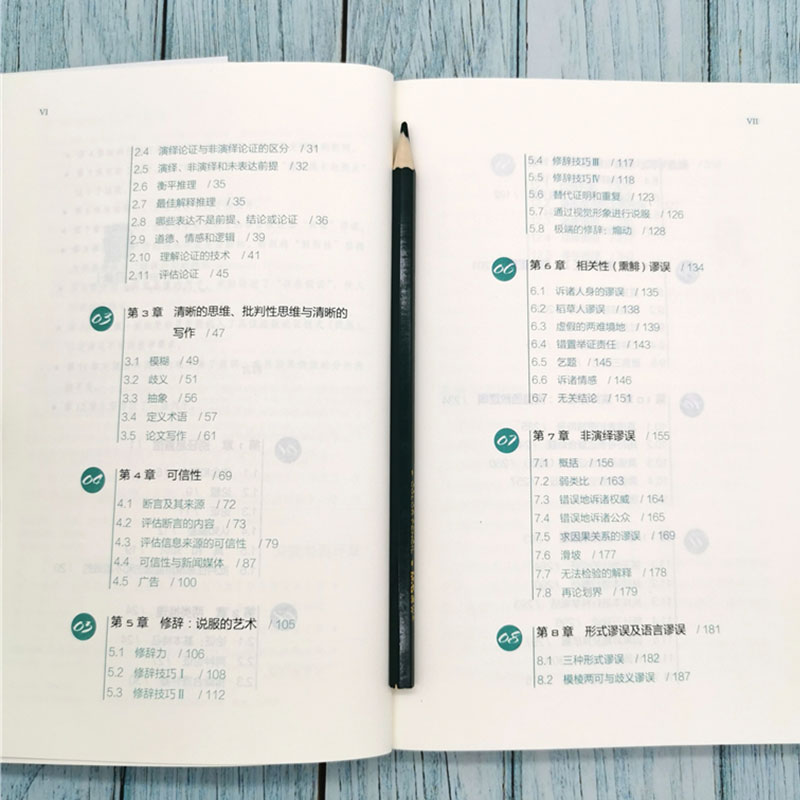 VI
2.4 演绎论证与非演绎论证的区分 /31
2.5 演绎、非演绎和未表达前提 /32
2.6 衡平推理 /35
2.7 最佳解释推理 /35
2.8 哪些表达不是前提、结论或论证 /36
2.9 道德、情感和逻辑 /39
2.10 理解论证的技术 /41
2.11 评估论证 /45
03 第3章 清晰的思维、批判性思维与清晰的
写作 /47
3.1 模糊 /49
3.2 歧义 /51
3.3 抽象 /56
3.4 定义术语 /57
3.5 论文写作 /61
04 第4章 可信性 /69
4.1 断言及其来源 /72
4.2 评估断言的内容 /73
4.3 评估信息来源的可信性 /79
4.4 可信性与新闻媒体 /87
4.5 广告 /100
05 第5章 修辞：说服的艺术 /105
5.1 修辞力 /106
5.2 修辞技巧Ⅰ /108
5.3 修辞技巧Ⅱ /112
VII
5.4 修辞技巧Ⅲ /117
5.5 修辞技巧Ⅳ /118
5.6 替代证明和重复 /123
5.7 通过视觉形象进行说服 /126
5.8 极端的修辞：煽动 /128
06 第6章 相关性（熏鲱）谬误 /134
6.1 诉诸人身的谬误 /135
6.2 稻草人谬误 /138
6.3 虚假的两难境地 /139
6.4 错置举证责任 /143
6.5 乞题 /145
6.6 诉诸情感 /146
6.7 无关结论 /151
07 第7章 非演绎谬误 /155
7.1 概括 /156
7.2 弱类比 /163
7.3 错误地诉诸权威 /164
7.4 错误地诉诸公众 /165
7.5 求因果关系的谬误 /169
7.6 滑坡 /177
7.7 无法检验的解释 /178
7.8 再论划界 /179
08 第8章 形式谬误及语言谬误 /181
8.1 三种形式谬误 /182
8.2 模棱两可与歧义谬误 /187